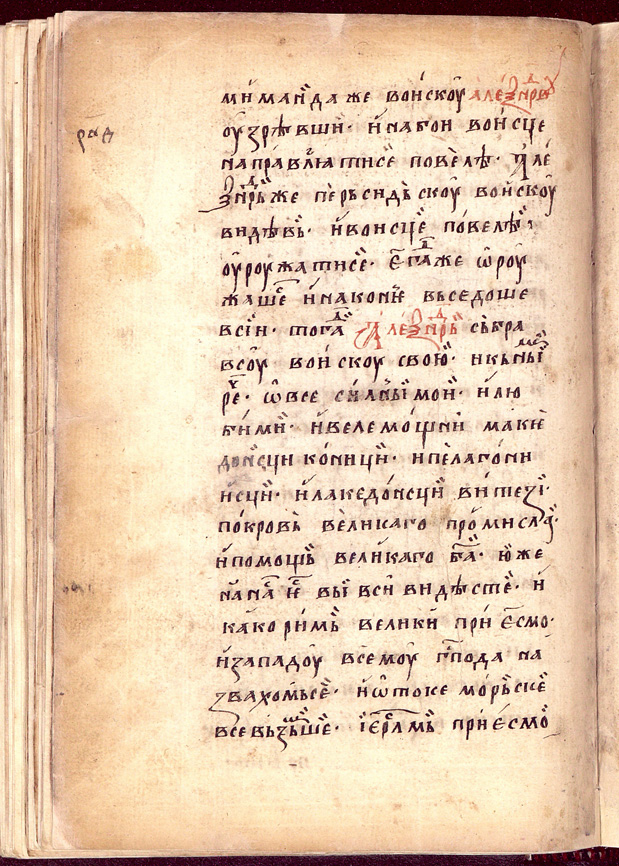 ми маида же воискоу алеѯⷣнрꙋ
оузрѣвши· и на бои воисце
направлꙗтисе повелѣ· Але
ѯⷣнрь же перьсидьскоу воискоу
видѣвь· и воисце повелѣ
оуроужатисе· Єгⷣа же ѡроу
жаше и на конꙗ вьседоше
вси· тогⷣа Алеѯⷣнрь сьбра
всоу воискоу свою· и кь нымь
рече· ѡ все силныи мои· и лю
бими· и велемощнии маке
донсци коници· и пелагони
исци· и лакедонсци витези·
покровь великаго промисла·
и помощь великаго ба· юже
на на ѥ вы вси видѣсте· и
како римь велики приесмо·
и западоу всемоу гпода на
звахомьсе· и ѡтоке морьске
все вьзьше· іерⷭлмь приесмо
рад